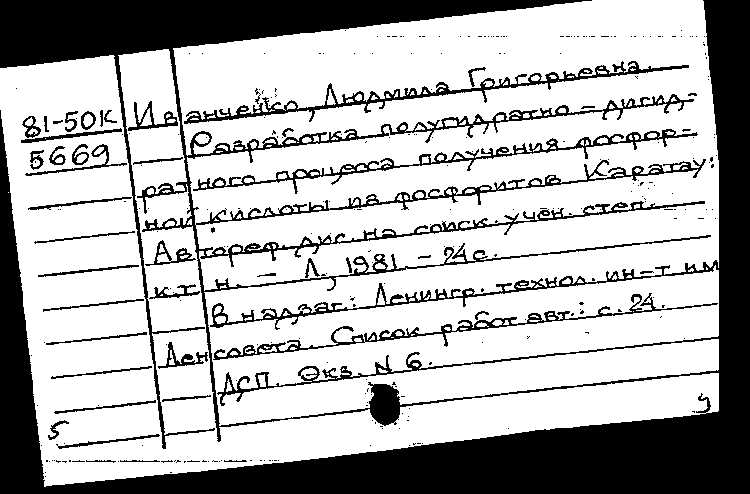 81-50К Иванченко, Людмила Григорьевна.
5669 Разработка полугидратно-дигид-
ратного процесса получения фосфор-
ной кислоты из фосфоритов Каратау:
Автореф. дис. на соиск. учен. степ.
к.т.н. - Л., 1981. - 24 с.
В надзаг.: Ленингр. технол. ин-т им
Ленсовета. Список работ авт.: с. 24.
ДСП. Экз. N 6.
5